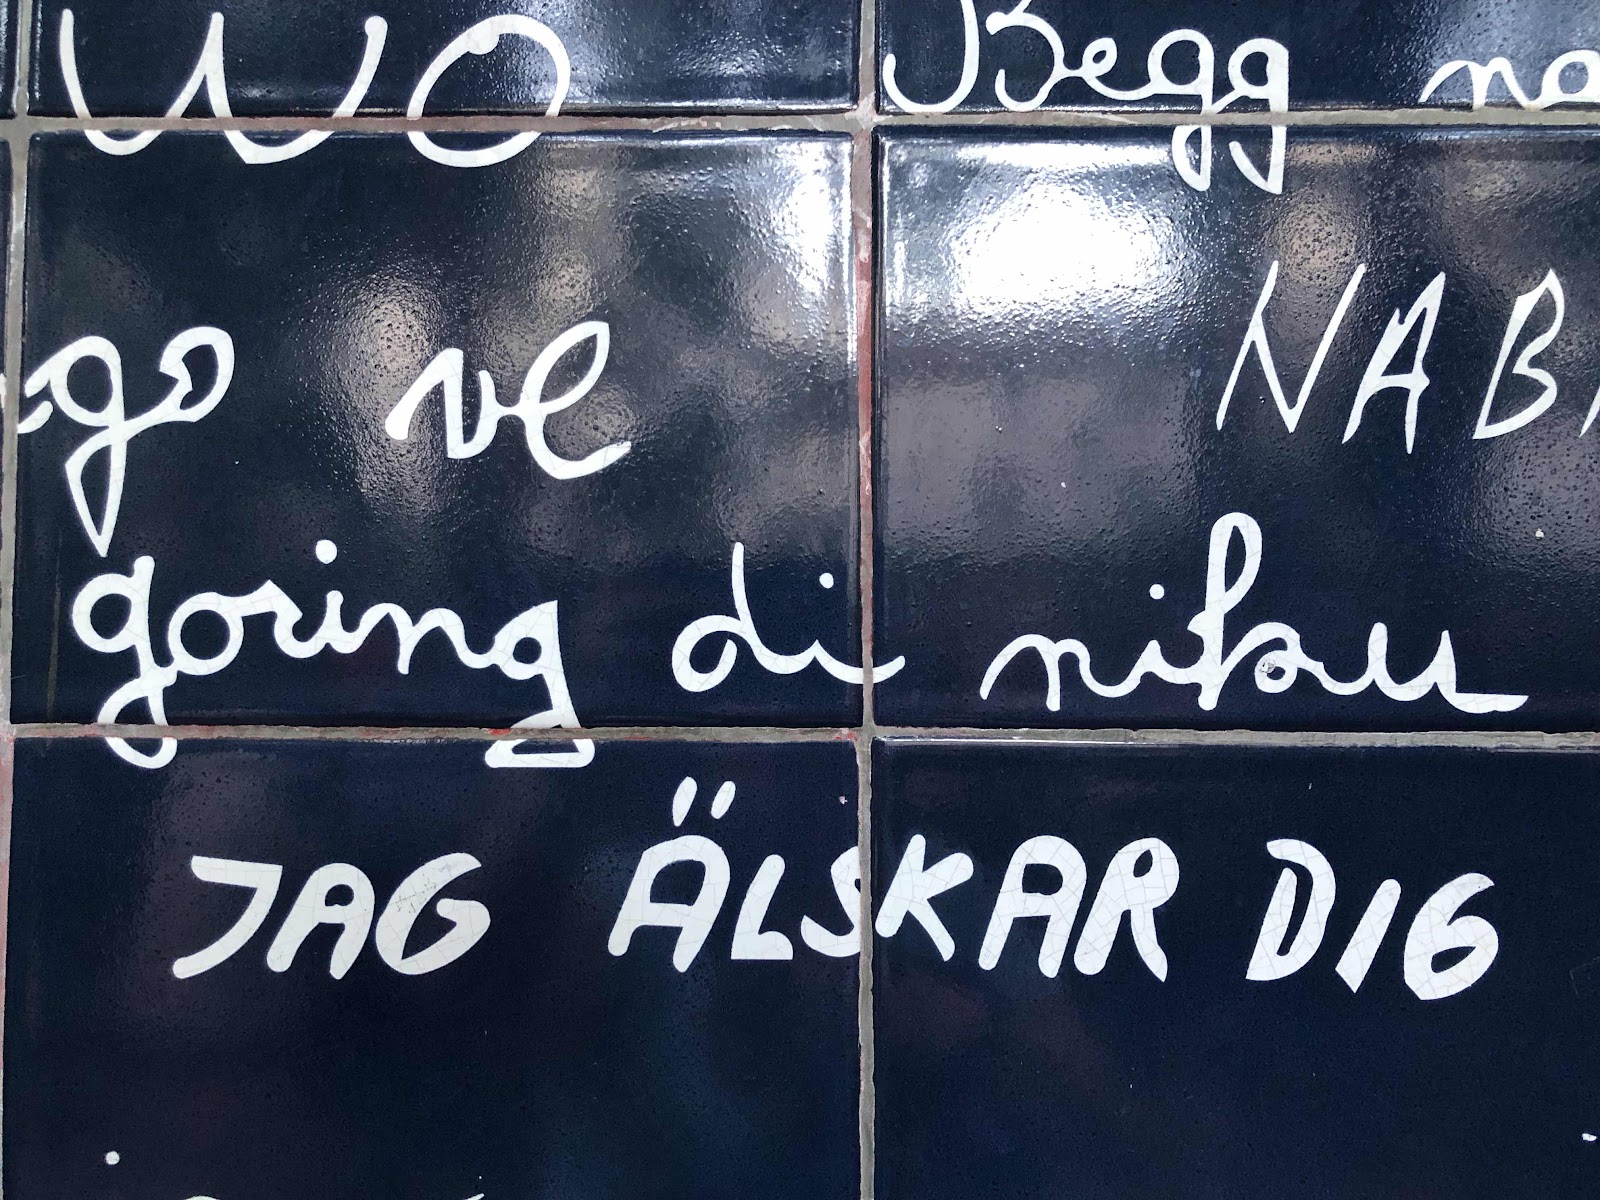 WO
Begg na
go ve
NAB
goring di nibu
JAG ÄLSKAR DIG